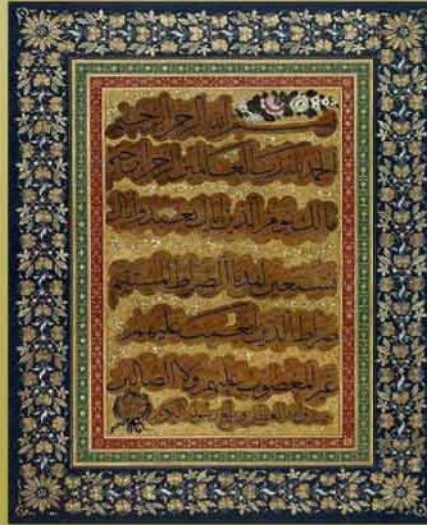 بسم الله الرحمن الرحيم
الحمد لله رب العالمين الرحمن الرحيم
مالك يوم الدين اياك نعبد واياك
نستعين اهدنا الصراط المستقيم
صراط الذين انعمت عليهم
غير المغضوب عليهم ولا الضالين
صدق الله رسوله الكريم